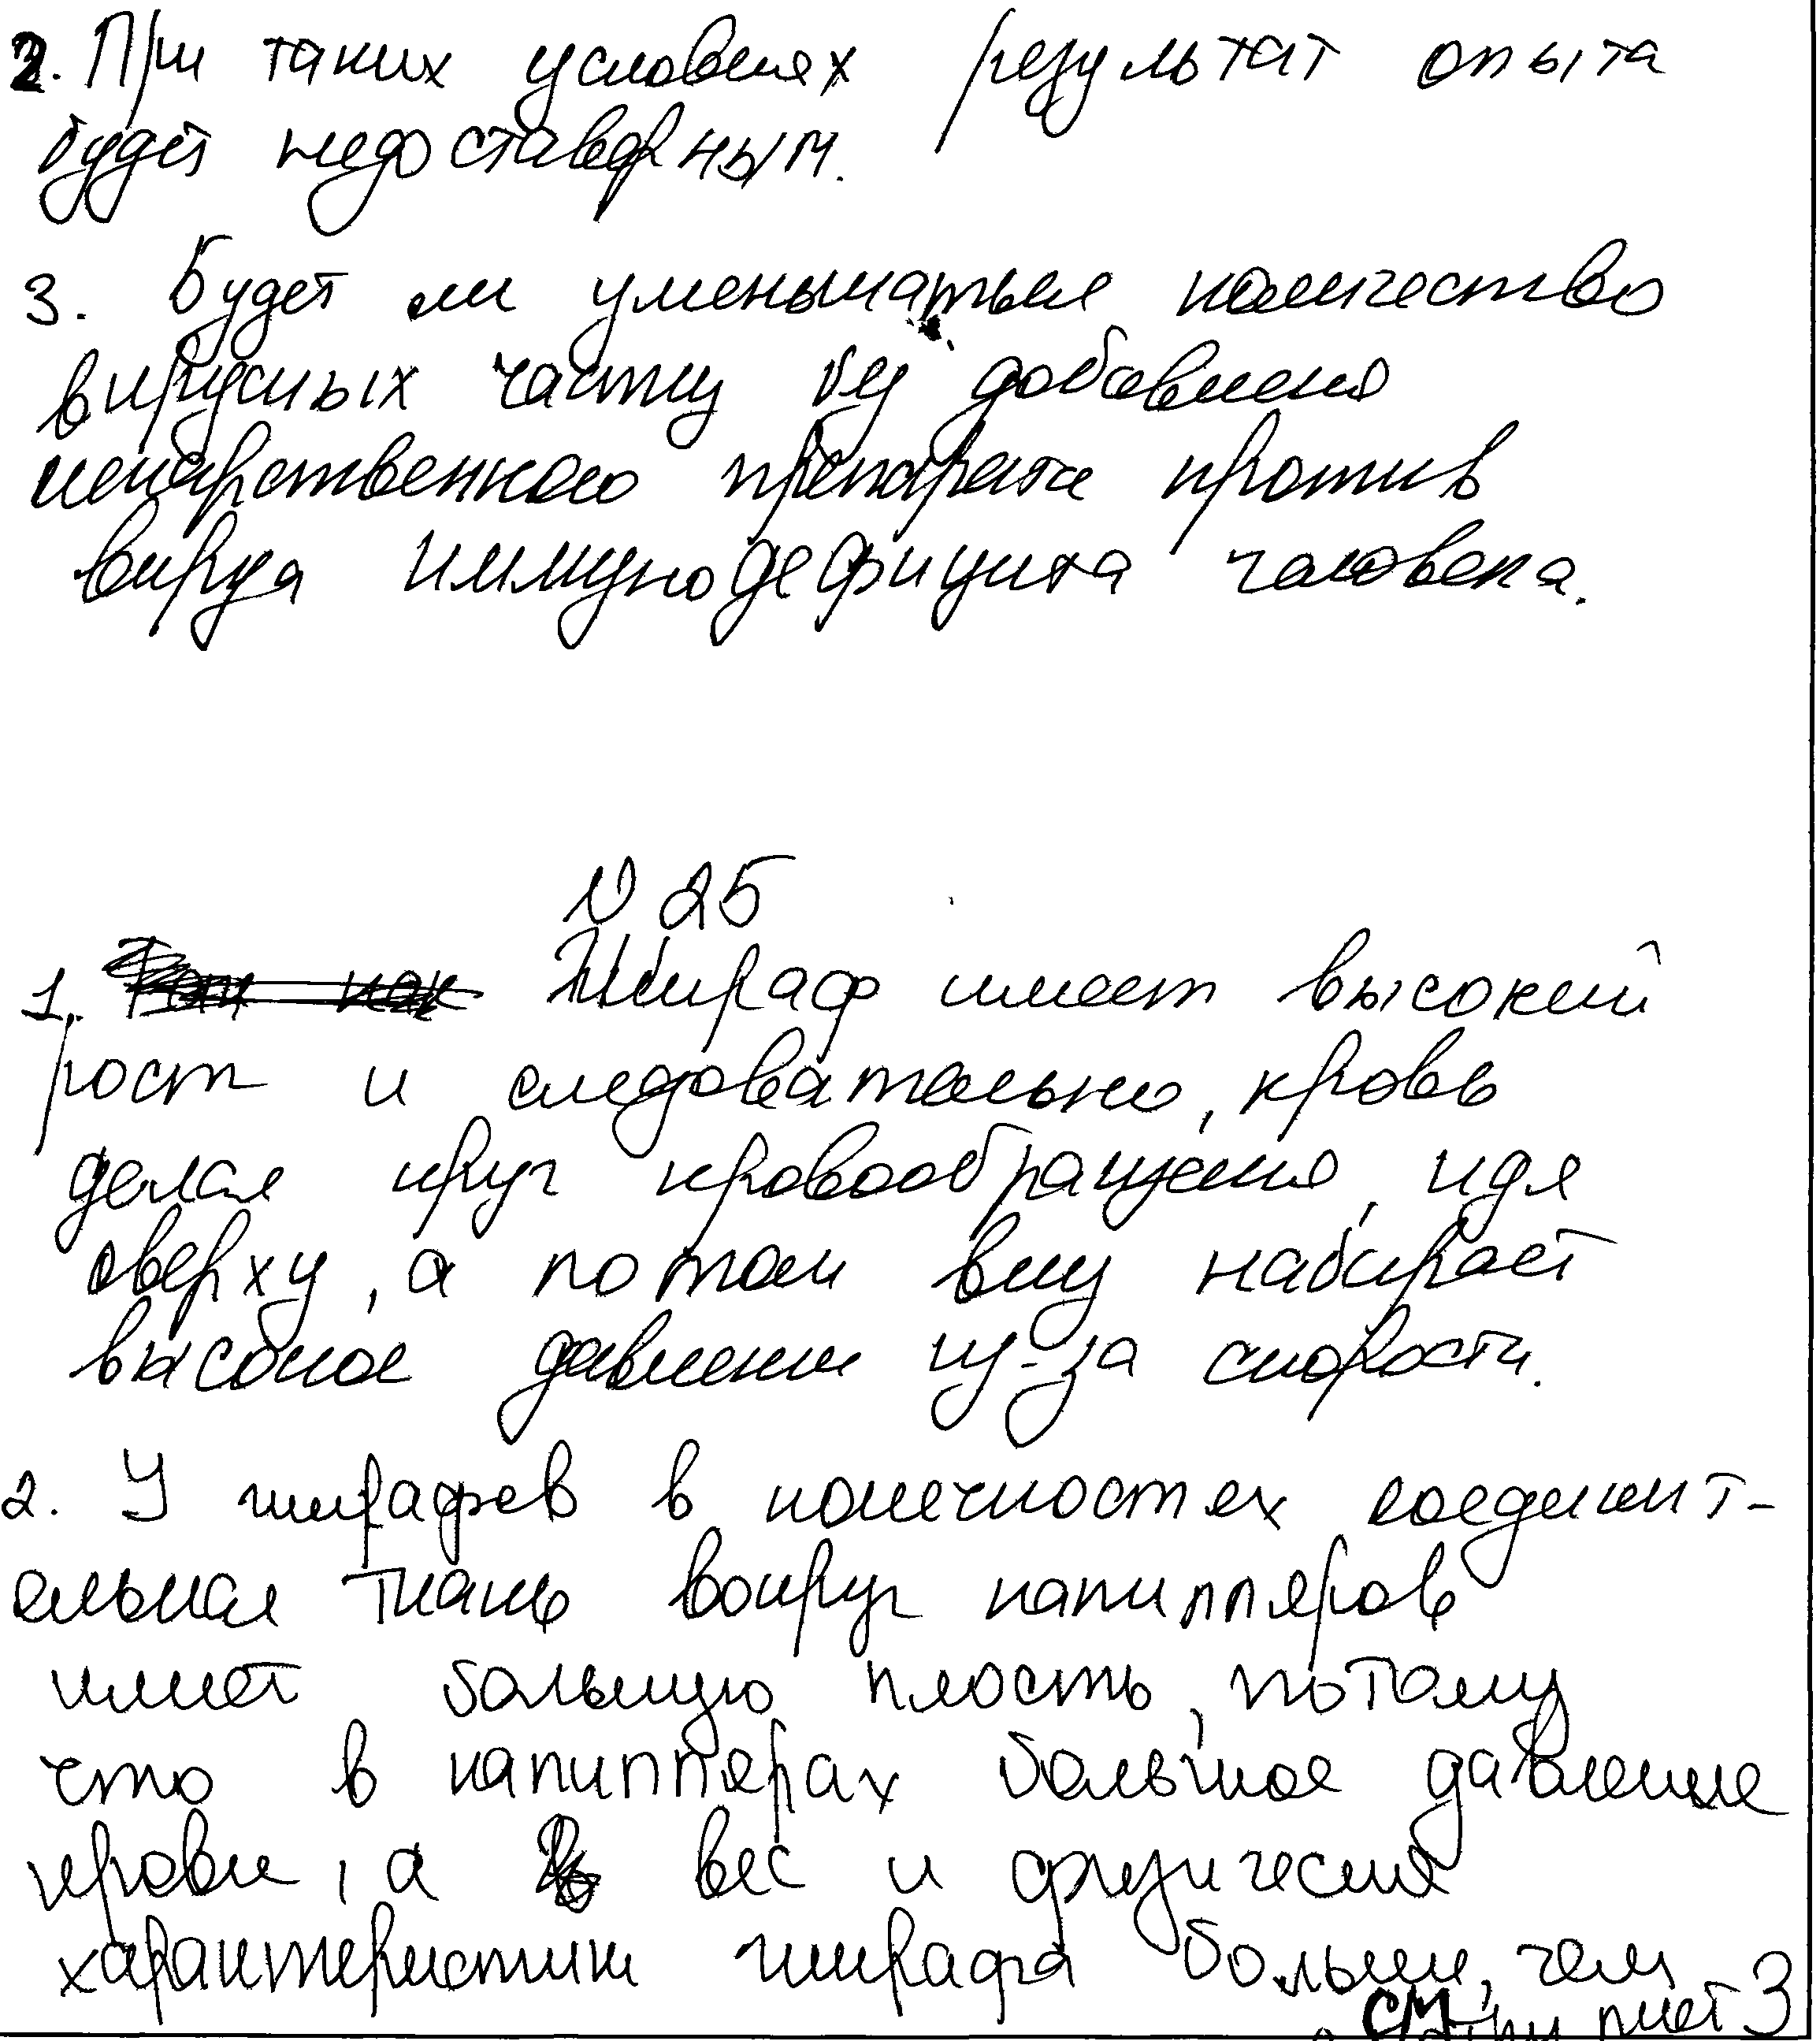 2. При таких условиях результат опыта
будет недоставерным.
3. Будет ли уменьшаться количество
вирусных частиц без добавления
лекарственного препарата против
вируса иммунодефицита человека.
N 25
1. Жираф имеет высокий
рост и следовательно, кровь
делая круг кровообращения, идя
сверху, а потом вниз набирает
высокое давление из-за скорости.
2. У жирафев в конечностях соединит-
ельная ткань вокруг капилляров
имеет большую плость, потому
что в капиллярах большое давление
крови, а вес и физические
характеристики жирафа больше, чем
см. лист 3